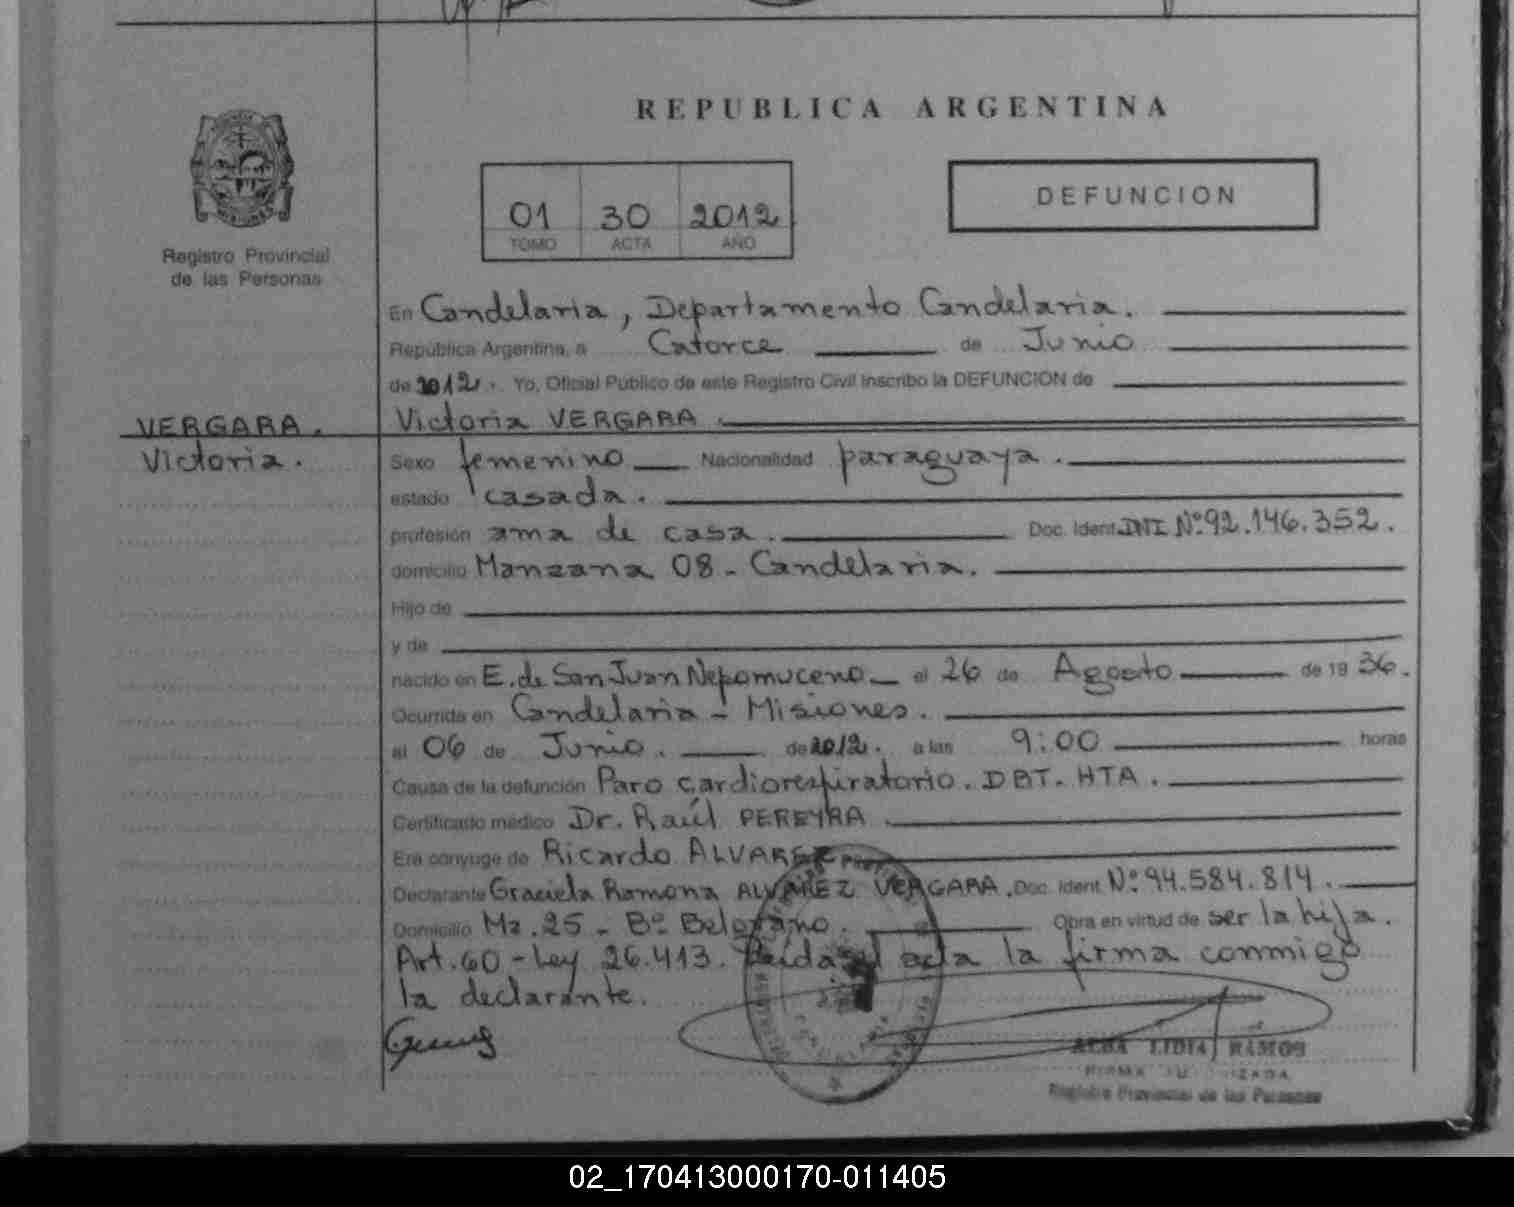 REPUBLICA ARGENTINA
01 30 2012
TOMO ACTA AÑO
DEFUNCION
Registro Provincial
de las Personas
En Candelaria, Departamento Candelaria.
República Argentina, a Catorce de Junio
de 2012. Yo, Oficial Público de este Registro Civil inscribo la DEFUNCION de
VERGARA.
Victoria.
Victoria VERGARA.
Sexo femenino Nacionalidad paraguaya.
estado casada.
profesión ama de casa. Doc. Ident. DNI Nº 92.146.352.
domicilio Manzana 08 - Candelaria.
Hijo de
y de
nacido en E. de San Juan Nepomuceno el 26 de Agosto de 19 36.
Ocurrida en Candelaria - Misiones.
al 06 de Junio. de 2012. a las 9:00 horas
Causa de la defunción Paro cardiorespiratorio. DBT. HTA.
Certificado médico Dr. Raúl PEREYRA.
Era cónyuge de Ricardo ALVAREZ
Declarante Graciela Ramona ALVAREZ VERGARA. Doc. Ident. Nº 94.584.814.
Domicilio Mz. 25 - Bº Belgrano. Obra en virtud de ser la hija.
Art. 60 - Ley 26.413. Leída el acta la firma conmigo
la declarante.
ALBA LIDIA RAMOS
FIRMA AUTORIZADA
Registro Provincial de las Personas
02_170413000170-011405